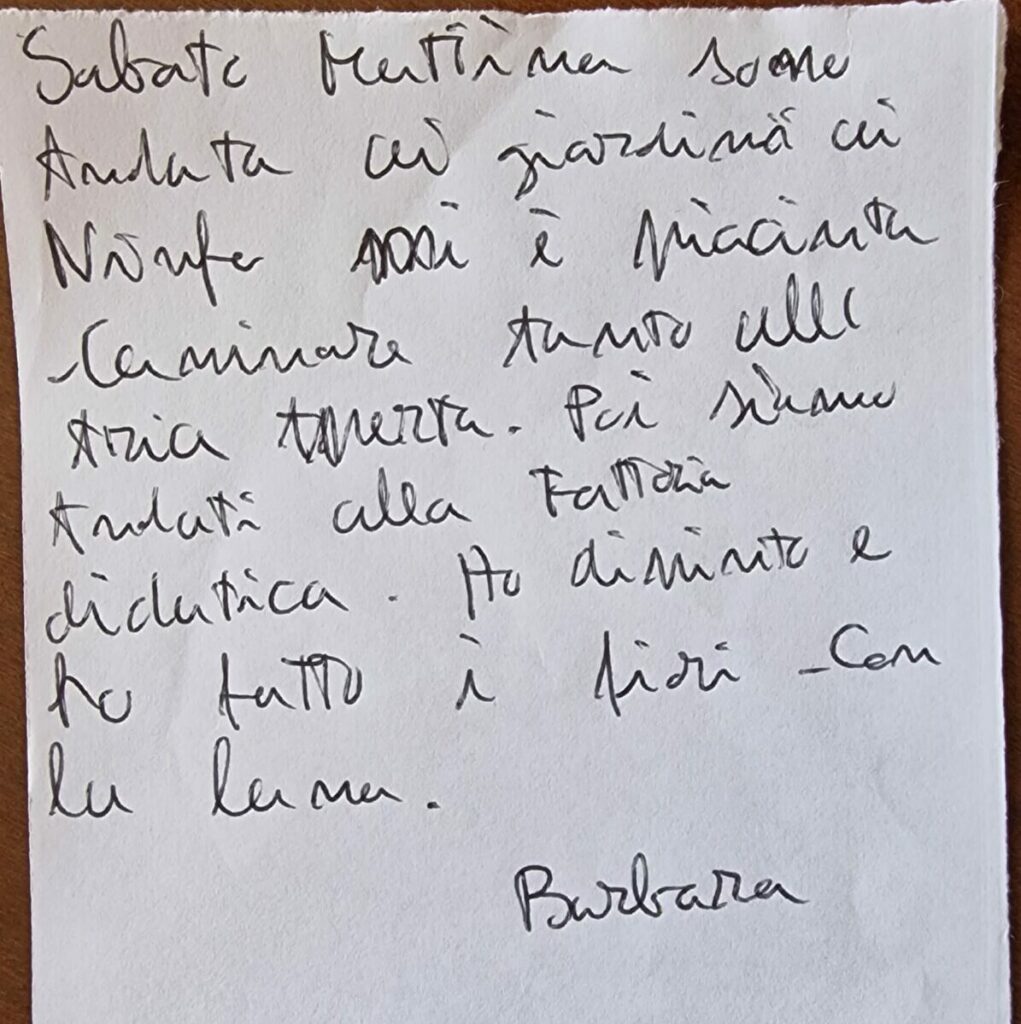 Sabato Mattina sono
Andata ai giardini di
Ninfa mi è piaciuta
Caminare tanto all
Aria Aperta. Poi siamo
Andati alla Fattoria
didatica. Ho dipinto e
ho fatto i fiori con
la lana.
Barbara